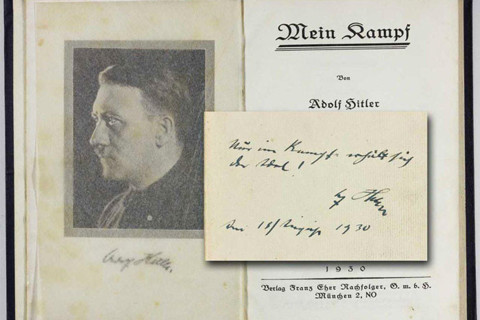 Mein Kampf
Von
Adolf Hitler
Nur im Kampf erhält sich
der Adel!
Hitler
den 18/August 1930
Adolf Hitler
1930
Verlag Franz Eher Nachfolger, G. m. b. H.
München 2, NO